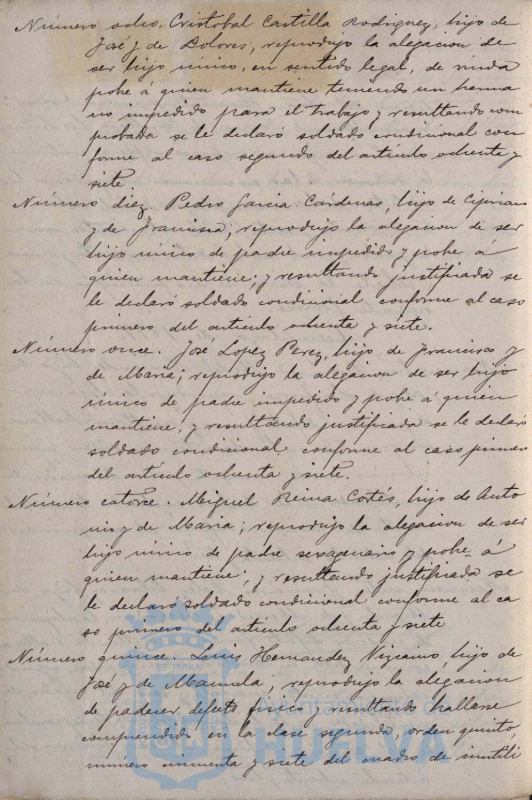 Número ocho. Cristobal Castilla Rodriguez, hijo de
José y de Dolores, reprodujo la alegacion de
ser hijo único, en sentido legal, de viuda
pobe á quien mantiene teniendo un herma
no impedido para el trabajo y resultando com
probada se le declaró soldado condicional con
forme al caso segundo del artículo ochenta y
siete.
Número diez. Pedro Garcia Cárdenas, hijo de Ciprian
y de Francisca; reprodujo la alegacion de ser
hijo único de padre impedido y pobe á
quien mantiene; y resultando justificada se
le declaró soldado condicional conforme al caso
primero del artículo ochenta y siete.
Número once. José Lopez Perez, hijo de Francisco y
de Maria; reprodujo la alegacion de ser hijo
único de padre impedido y pobe á quien
mantiene; y resultando justificada se le declaró
soldado condicional conforme al caso primero
del artículo ochenta y siete.
Número catorce. Miguel Reina Cortés, hijo de Anto
nio y de Maria; reprodujo la alegacion de ser
hijo único de padre sexagenario y pobe á
quien mantiene; y resultando justificada se
le declaró soldado condicional conforme al ca
so primero del artículo ochenta y siete
Número quince. Luis Hernandez Vizcaino, hijo de
José y de Manuela; reprodujo la alegacion
de padecer defecto físico y resultando hallarse
comprendido en la clase segunda, orden quinto,
número cincuenta y siete del cuadro de inutili
HUELVA